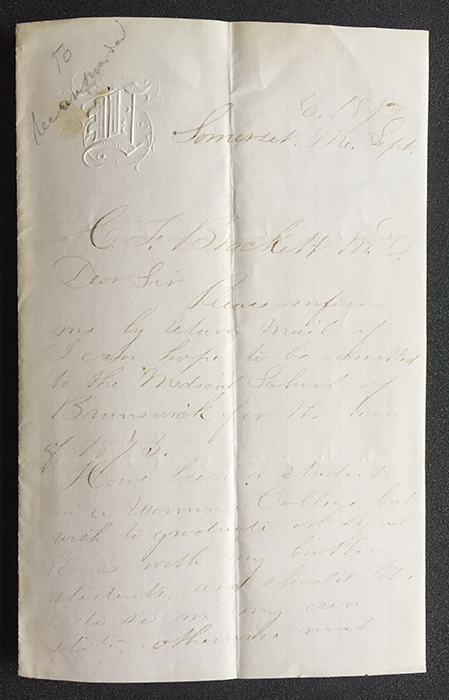 To
Somerset. Me. Sept.
C. F. Brackett M. D.
Dear Sir
Please inform
me by return mail if
I can hope to be admitted
to the Medical School of
Brunswick for the term
of 1873.
Have been a student
in a Womans College, but
wish to graduate on equal
terms with my brother
students, and should like
to do so in my own
state, otherwise must